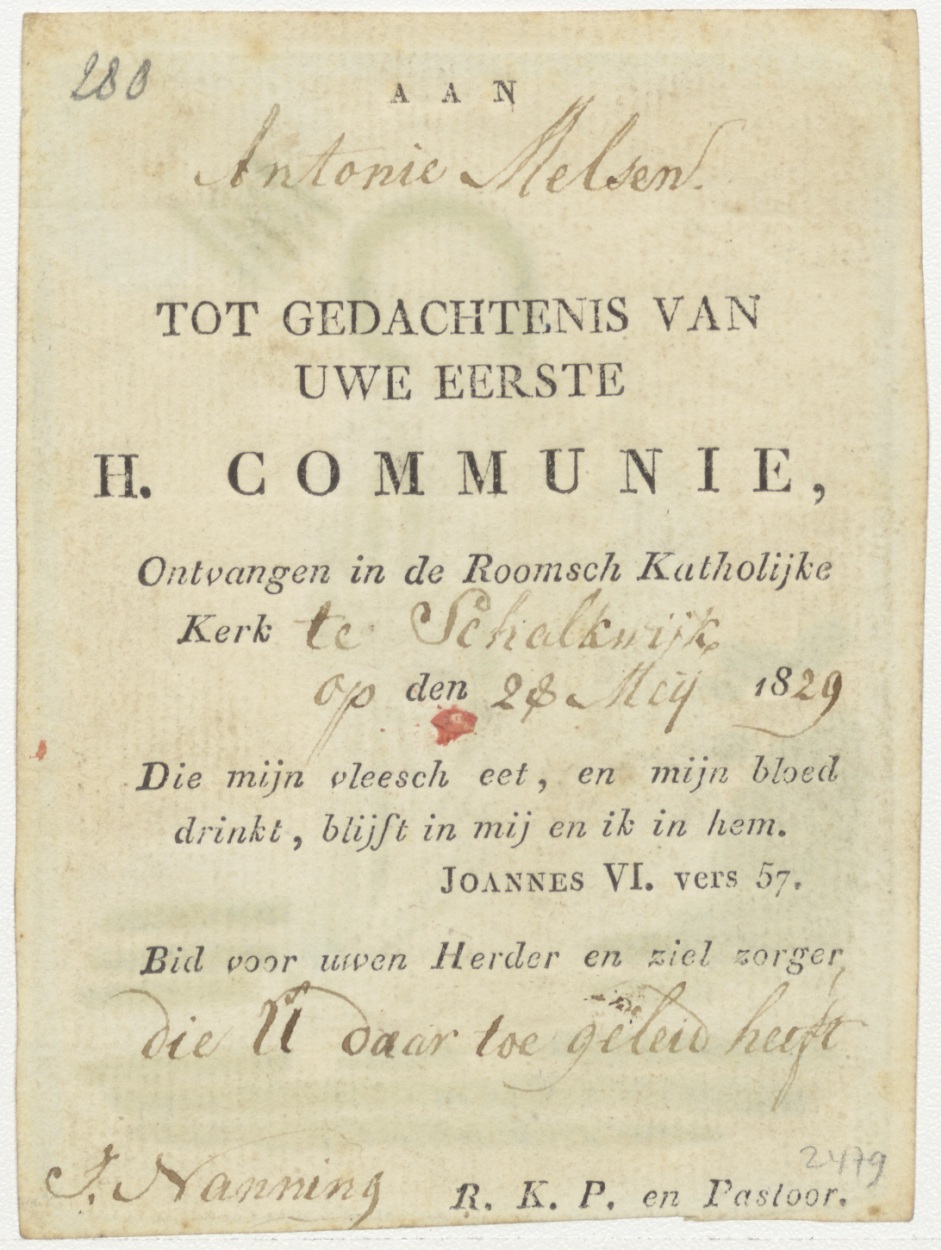 280
AAN
Antonie Melsen.
TOT GEDACHTENIS VAN
UWE EERSTE
H. COMMUNIE,
Ontvangen in de Roomsch Katholijke
Kerk te Schalkwijk
op den 28 Meij 1829
Die mijn vleesch eet, en mijn bloed
drinkt, blijft in mij en ik in hem.
JOANNES VI. vers 57.
Bid voor uwen Herder en ziel zorger,
die U daar toe geleid heeft
2479
J. Nanning R. K. P. en Pastoor.